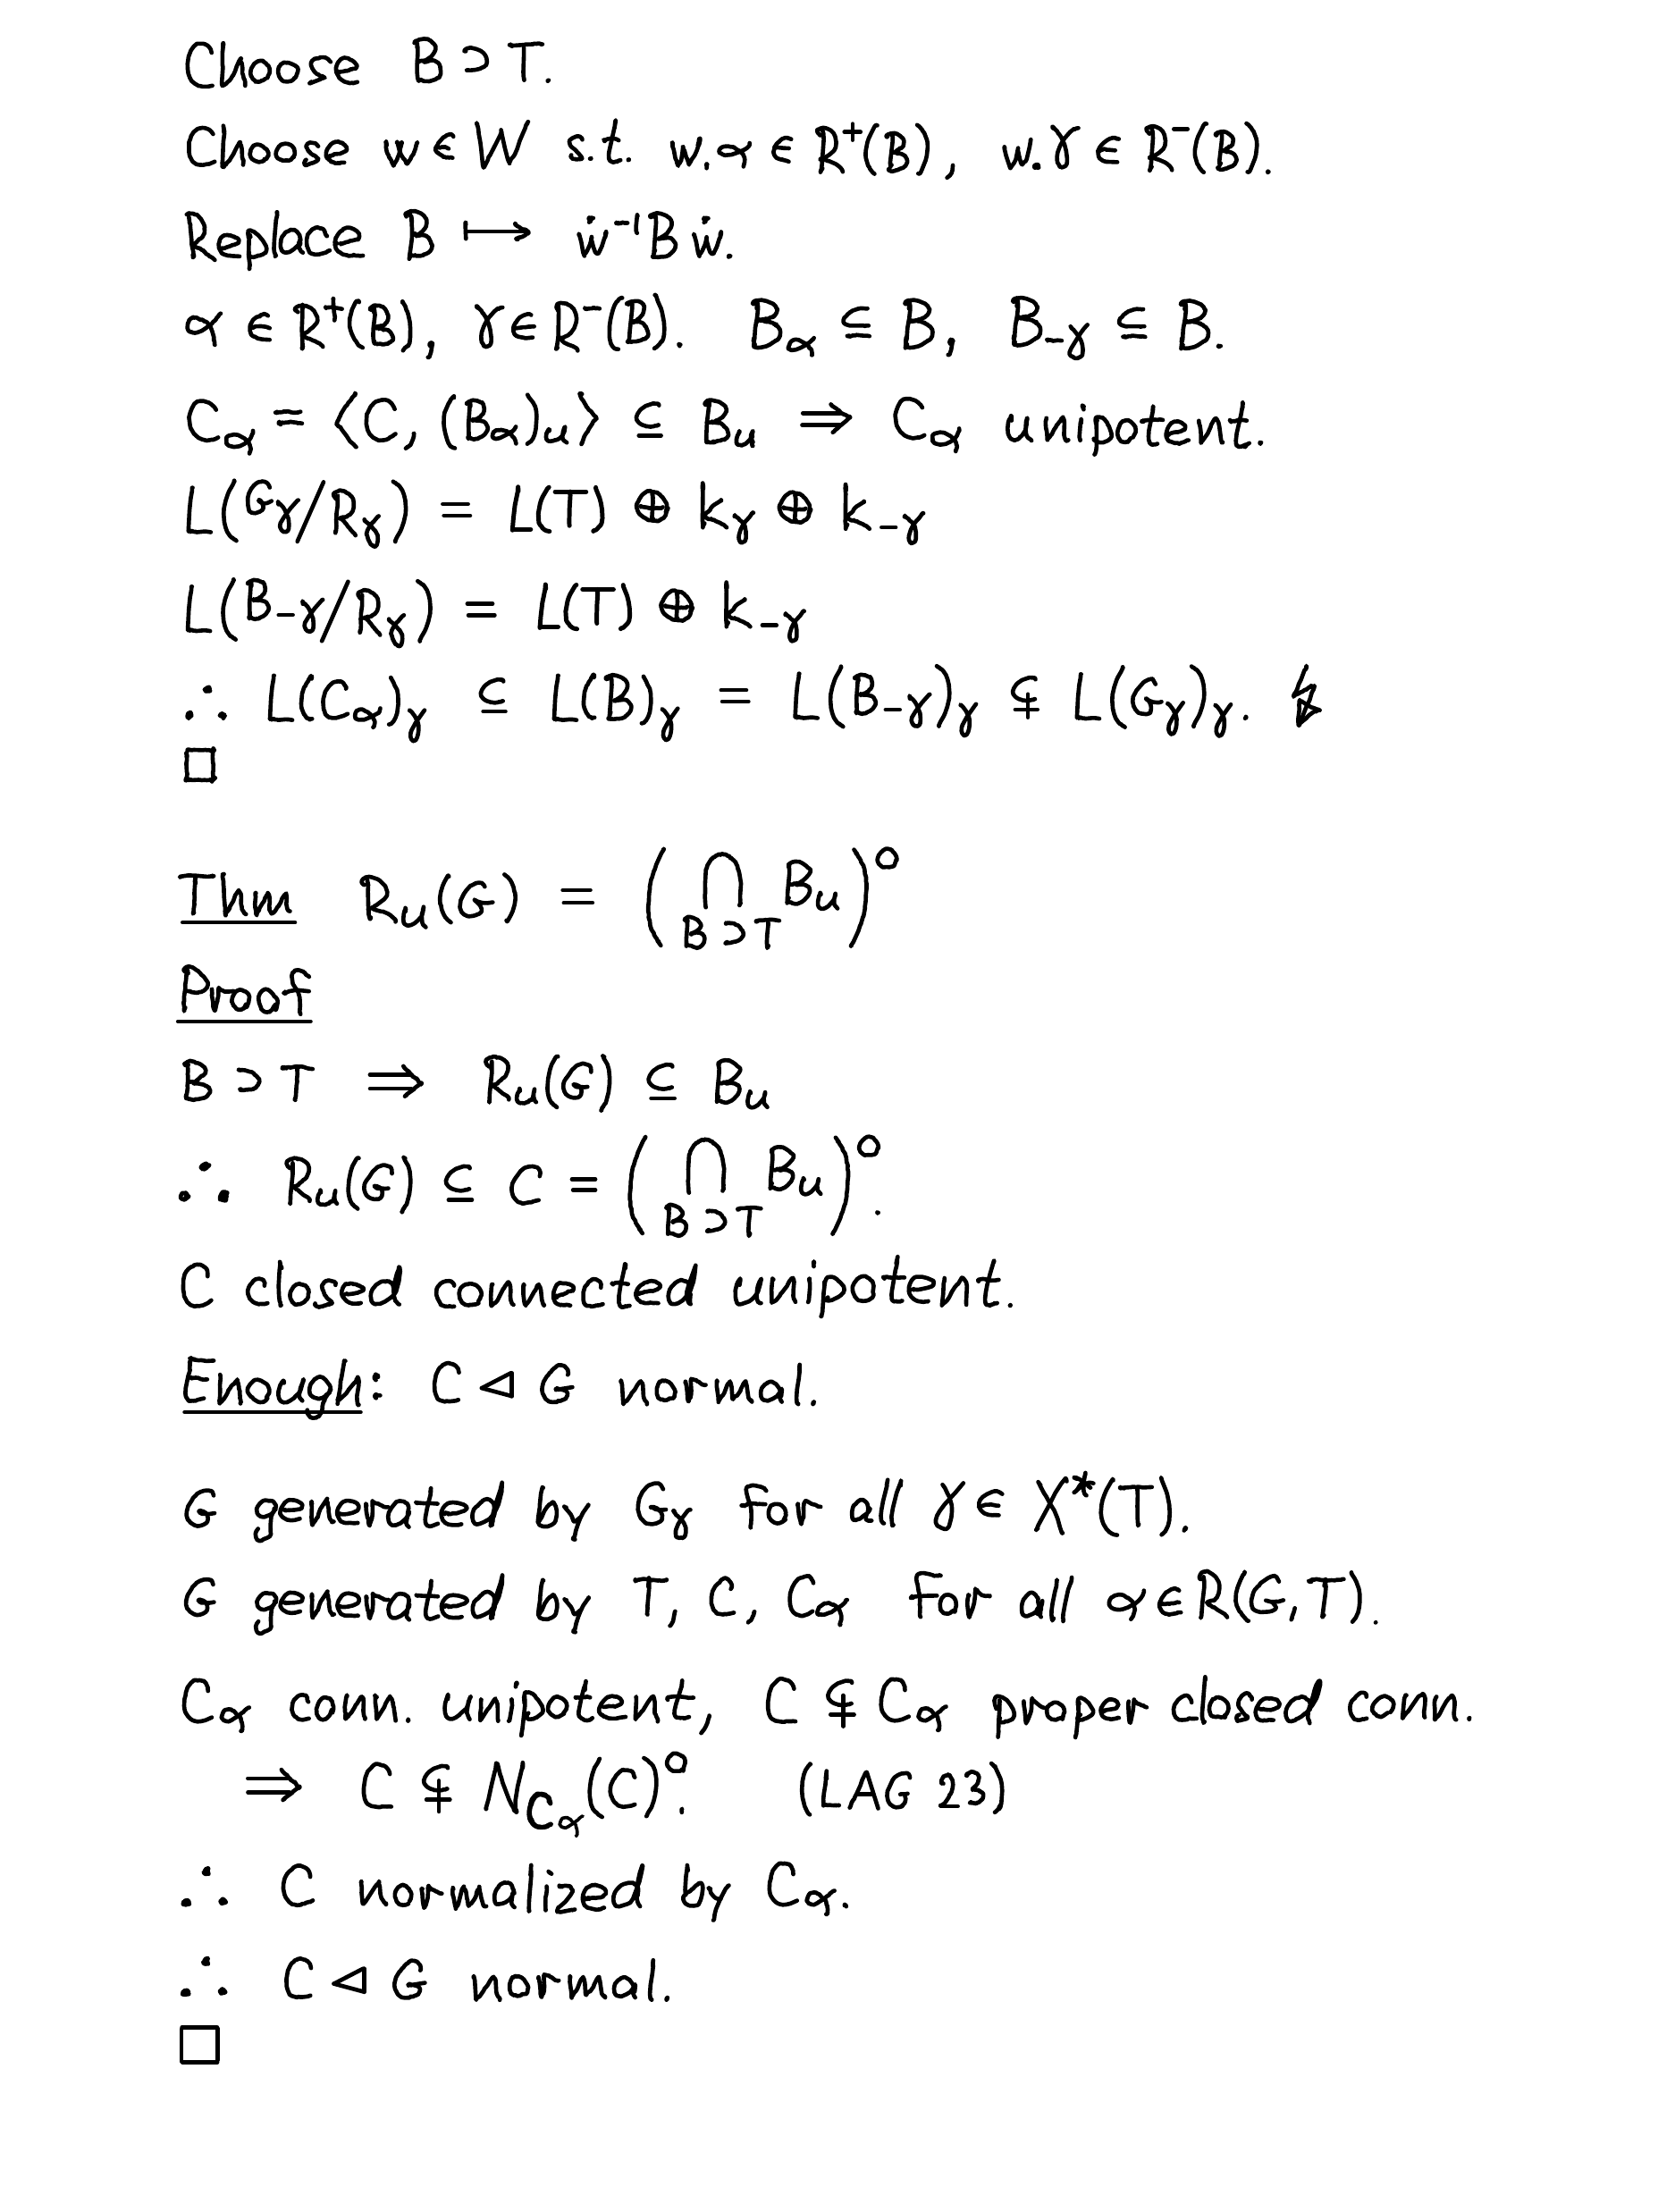 Choose B ⊃ T.
Choose w ∈ W s.t. w.α ∈ R⁺(B), w.γ ∈ R⁻(B).
Replace B ↦ ẇ⁻¹Bẇ.
α ∈ R⁺(B), γ ∈ R⁻(B). B_α ⊆ B, B_{-γ} ⊆ B.
C_α = ⟨C, (B_α)_u⟩ ⊆ B_u ⇒ C_α unipotent.
L(G_γ/R_γ) = L(T) ⊕ k_γ ⊕ k_{-γ}
L(B_{-γ}/R_γ) = L(T) ⊕ k_{-γ}
∴ L(C_α)_γ ⊆ L(B)_γ = L(B_{-γ})_γ ⊊ L(G_γ)_γ. ↯
□
Thm R_u(G) = (⋂_{B⊃T} B_u)°
Proof
B ⊃ T ⇒ R_u(G) ⊆ B_u
∴ R_u(G) ⊆ C = (⋂_{B⊃T} B_u)°.
C closed connected unipotent.
Enough: C ◁ G normal.
G generated by G_γ for all γ ∈ X*(T).
G generated by T, C, C_α for all α ∈ R(G,T).
C_α conn. unipotent, C ⊊ C_α proper closed conn.
⇒ C ⊊ N_{C_α}(C)°. (LAG 23)
∴ C normalized by C_α.
∴ C ◁ G normal.
□